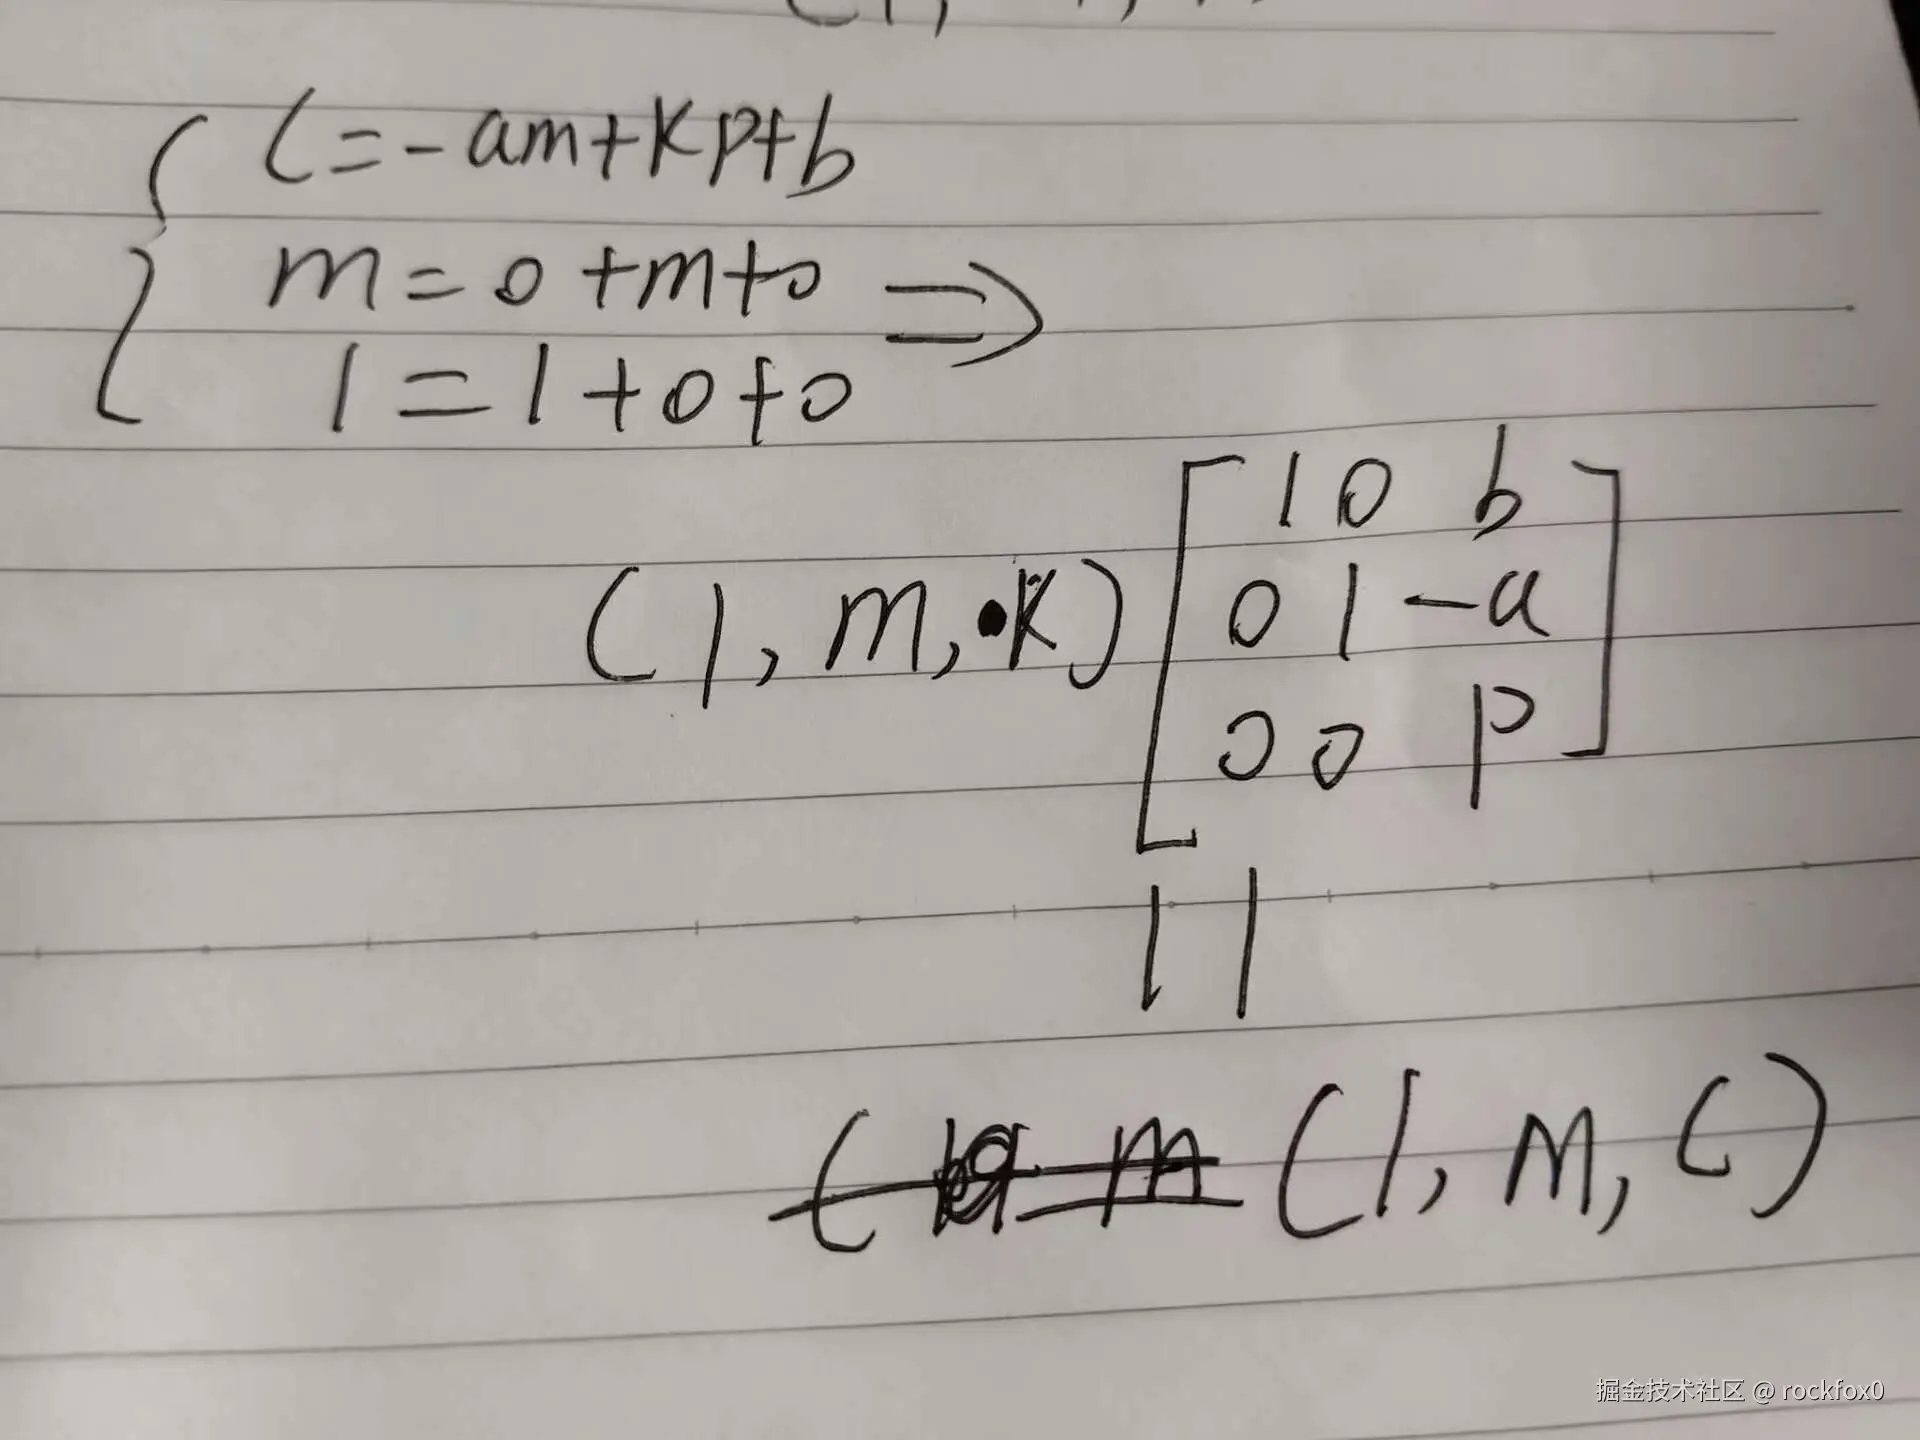 c=-am+kp+b
m=0+m+0 =>
1=1+0+0
(1, m, k) [1 0 b
0 1 -a
0 0 p]
||
(1, m, c)
掘金技术社区 @ rockfox0